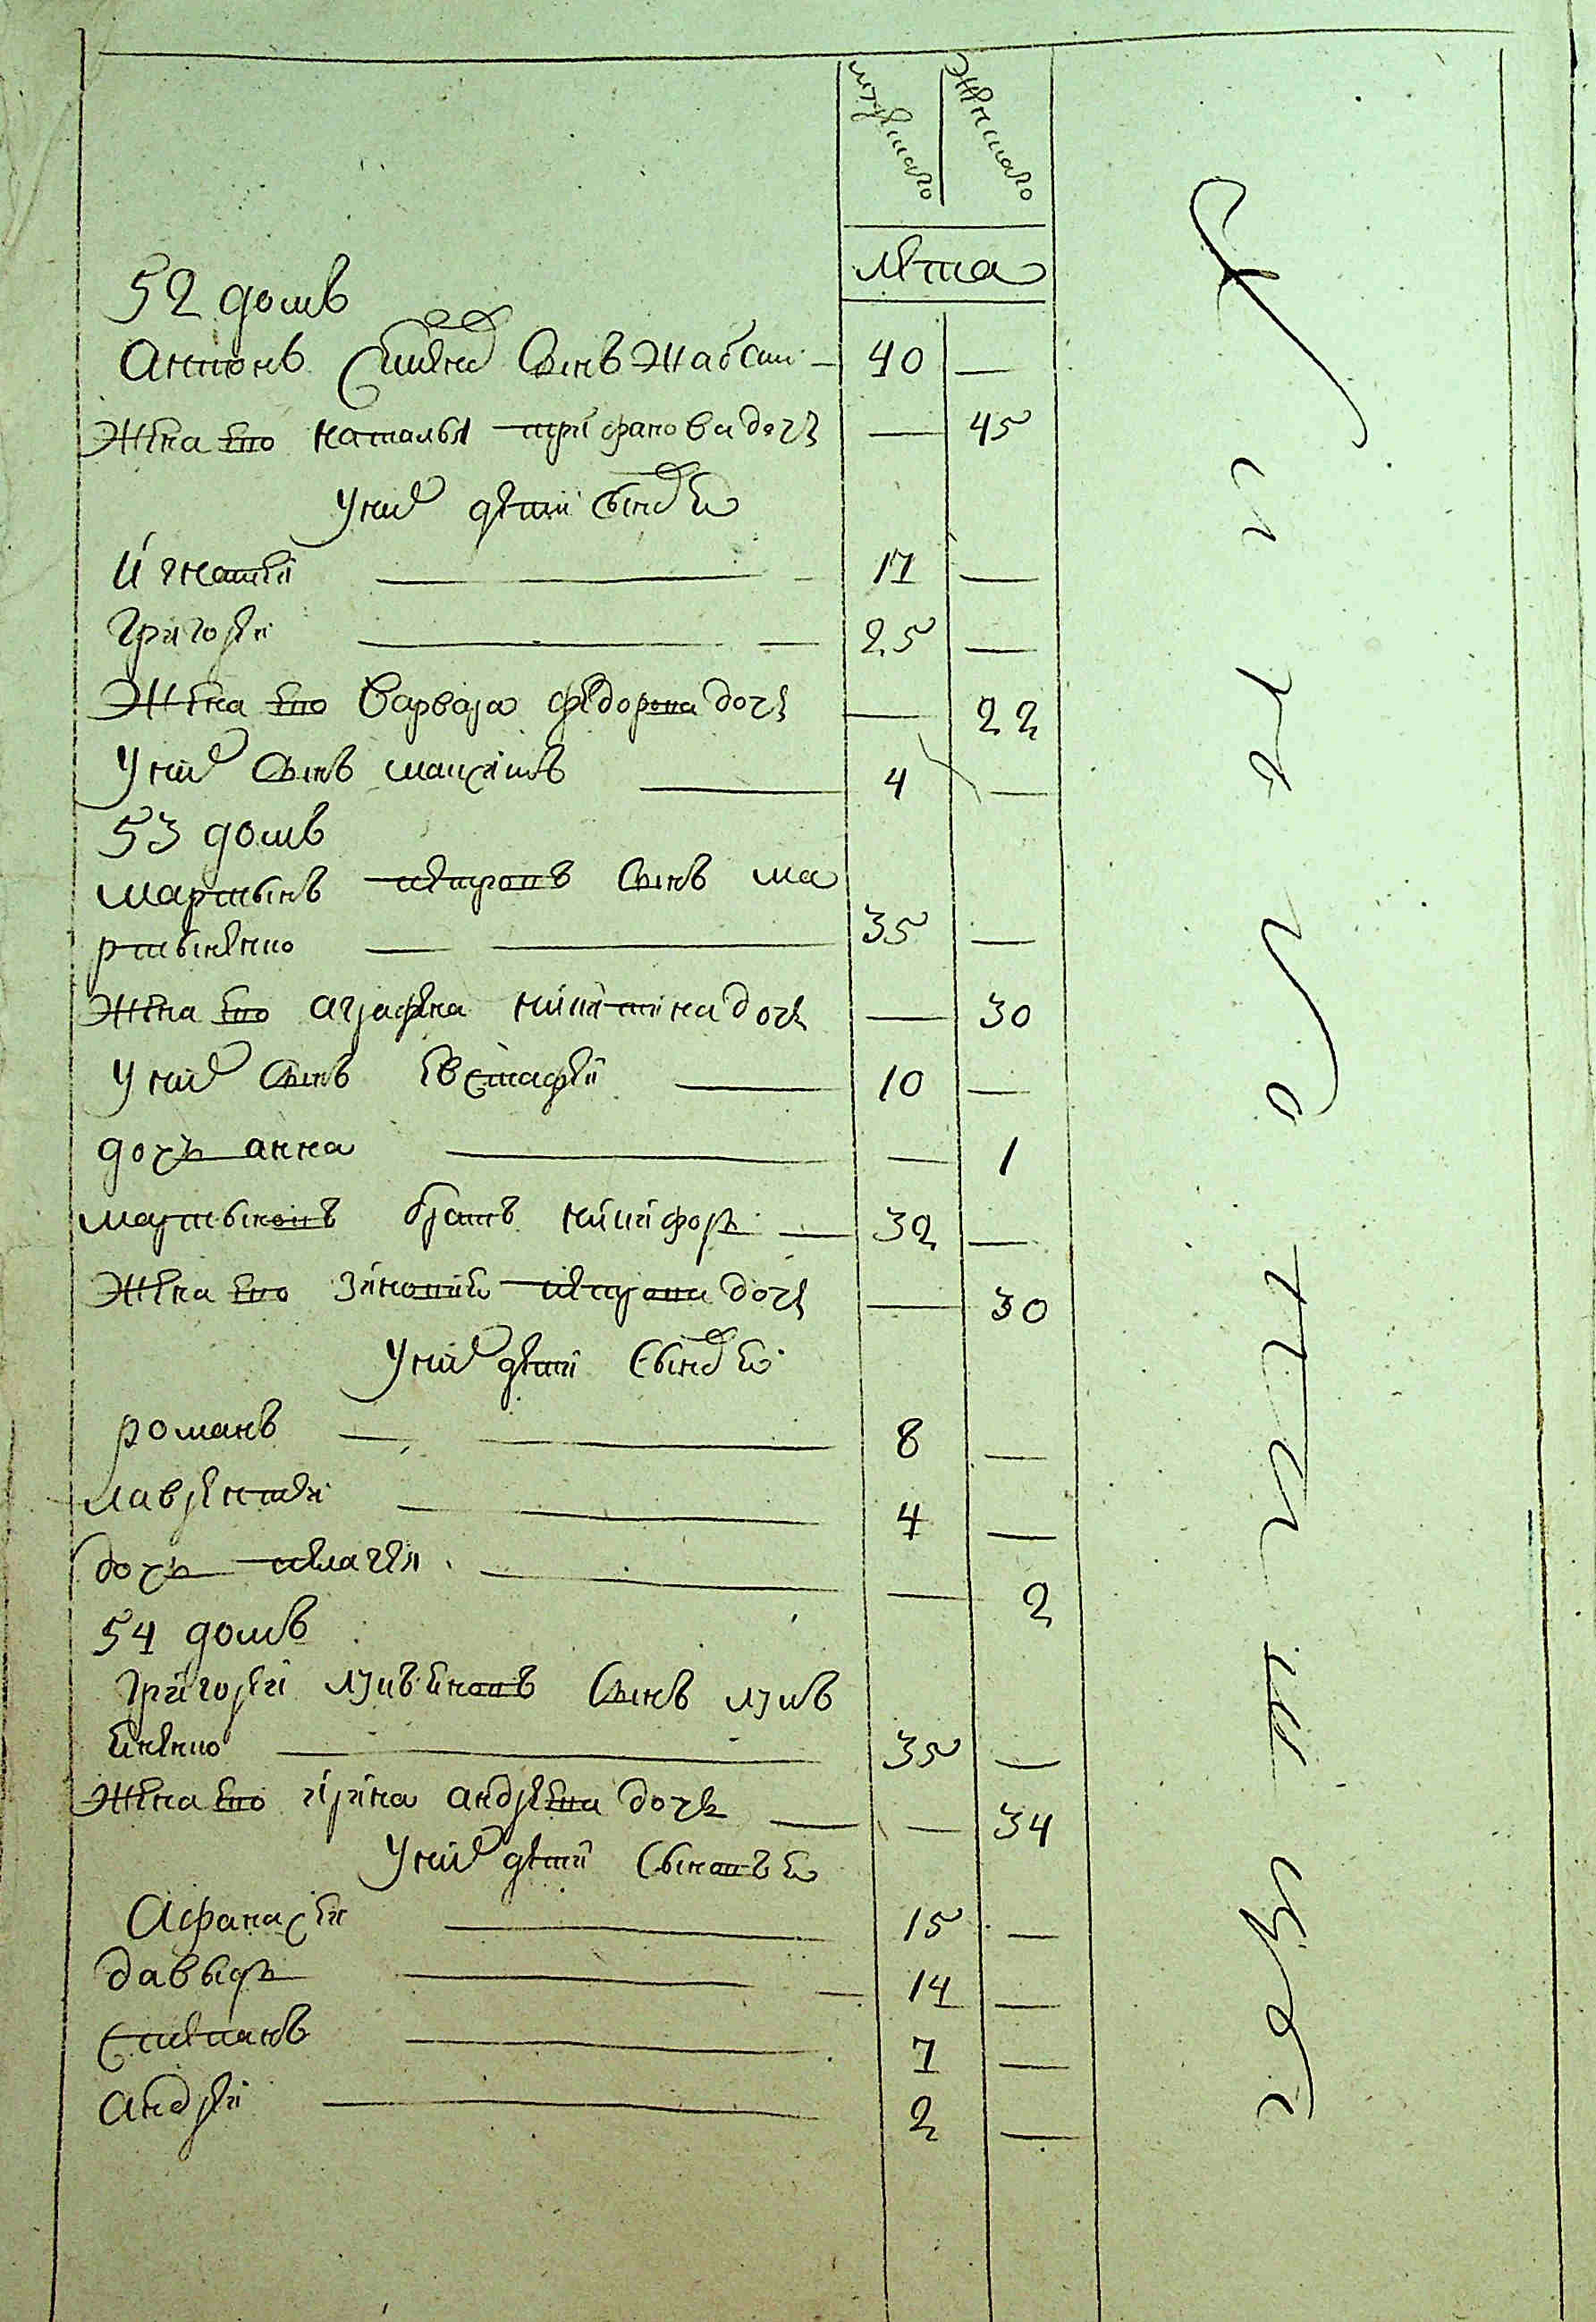 мужеска женска
лета
52 домъ
Антонъ сынъ Жабски 40 —
Жена его наталья трифанова дочь — 45
У них дети сыновья
Игнатей 17 —
Григорей 25 —
Жена его Варвара федорова дочь — 22
У них сынъ максимъ 4 —
53 домъ
мартынъ петровъ сынъ ма
ртыненко 35 —
Жена его аграфена никитина дочь — 30
У них сынъ Евстафей 10 —
дочь анна — 1
мартыновъ братъ никифоръ 32 —
Жена его зиновия петрова дочь — 30
У них дети сыновья
романъ 8 —
лаврентей 4 —
дочь пелагея — 2
54 домъ
Григорей сынъ
35 —
Жена его ирина андреева дочь — 34
У них дети сыновья
Афанасей 15 —
давыдъ 14 —
степанъ 7 —
андрей 2 —